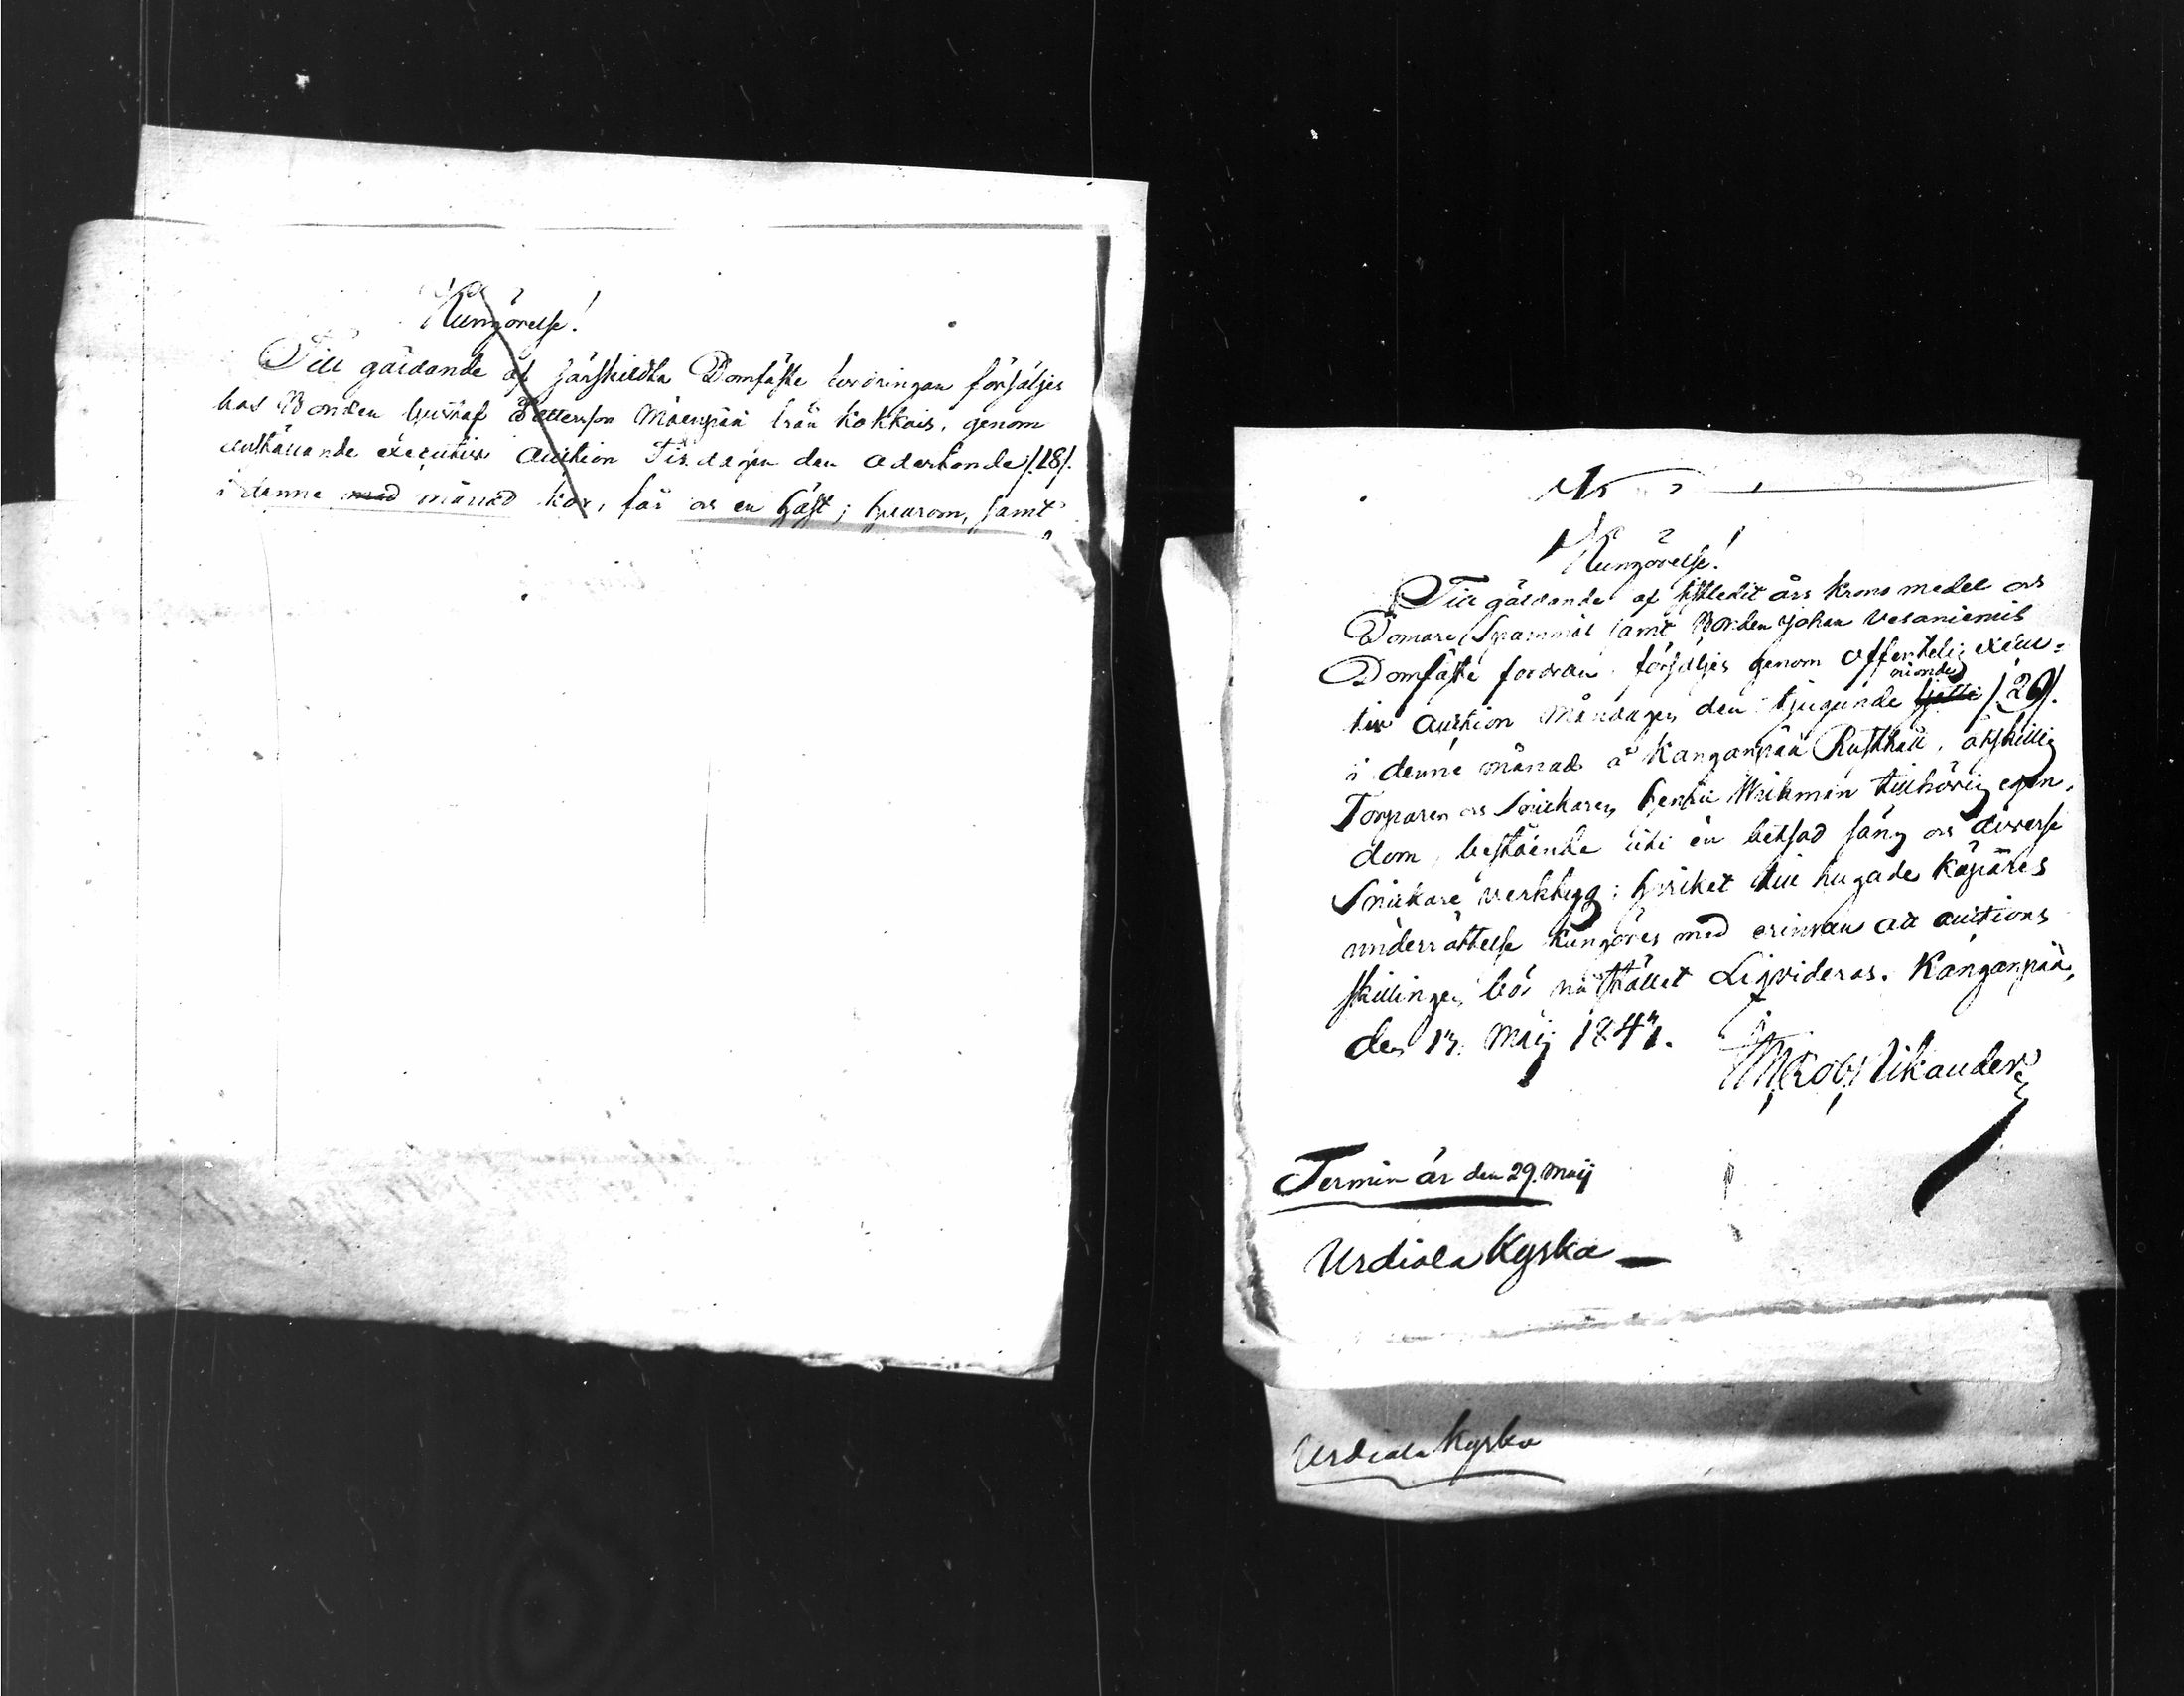 Kungörelse!
Till gäldande af särskildta Domfäste fordringar försäljes
hos Bonden Gustaf Pettersson Mäenpää från Kokkois, genom
anställande executiv Auction Tisdagen den adertonde /.18/.
i denne med månad kor, får och en häst; hvarom, samt
Kungörelse!
Till gäldande af sistledit års Krono medel och
Domare Spanmål samt Bonden Johan Vesaniemis
Domfäste fordran försäljes genom offentelig execu-
tiv Auction Måndagen den tjugunde nionde /.29/.
i denne månad å Kanganpää Rusthåll, åtskillig
Torparen och Snickaren Henric Wikman tillhörig egen-
dom, bestående uti en betsad säng och diverse
Snickare verktygg; hvilket till hugade Köpares
underrättelse kungöres med erinran att auctions
skillingen bör vid stället Liqvideras. Kanganpää,
den Maij
Rob. Nikander
Termin är den 29. Maij
Urdiala Kyrka
Urdiala Kyrka